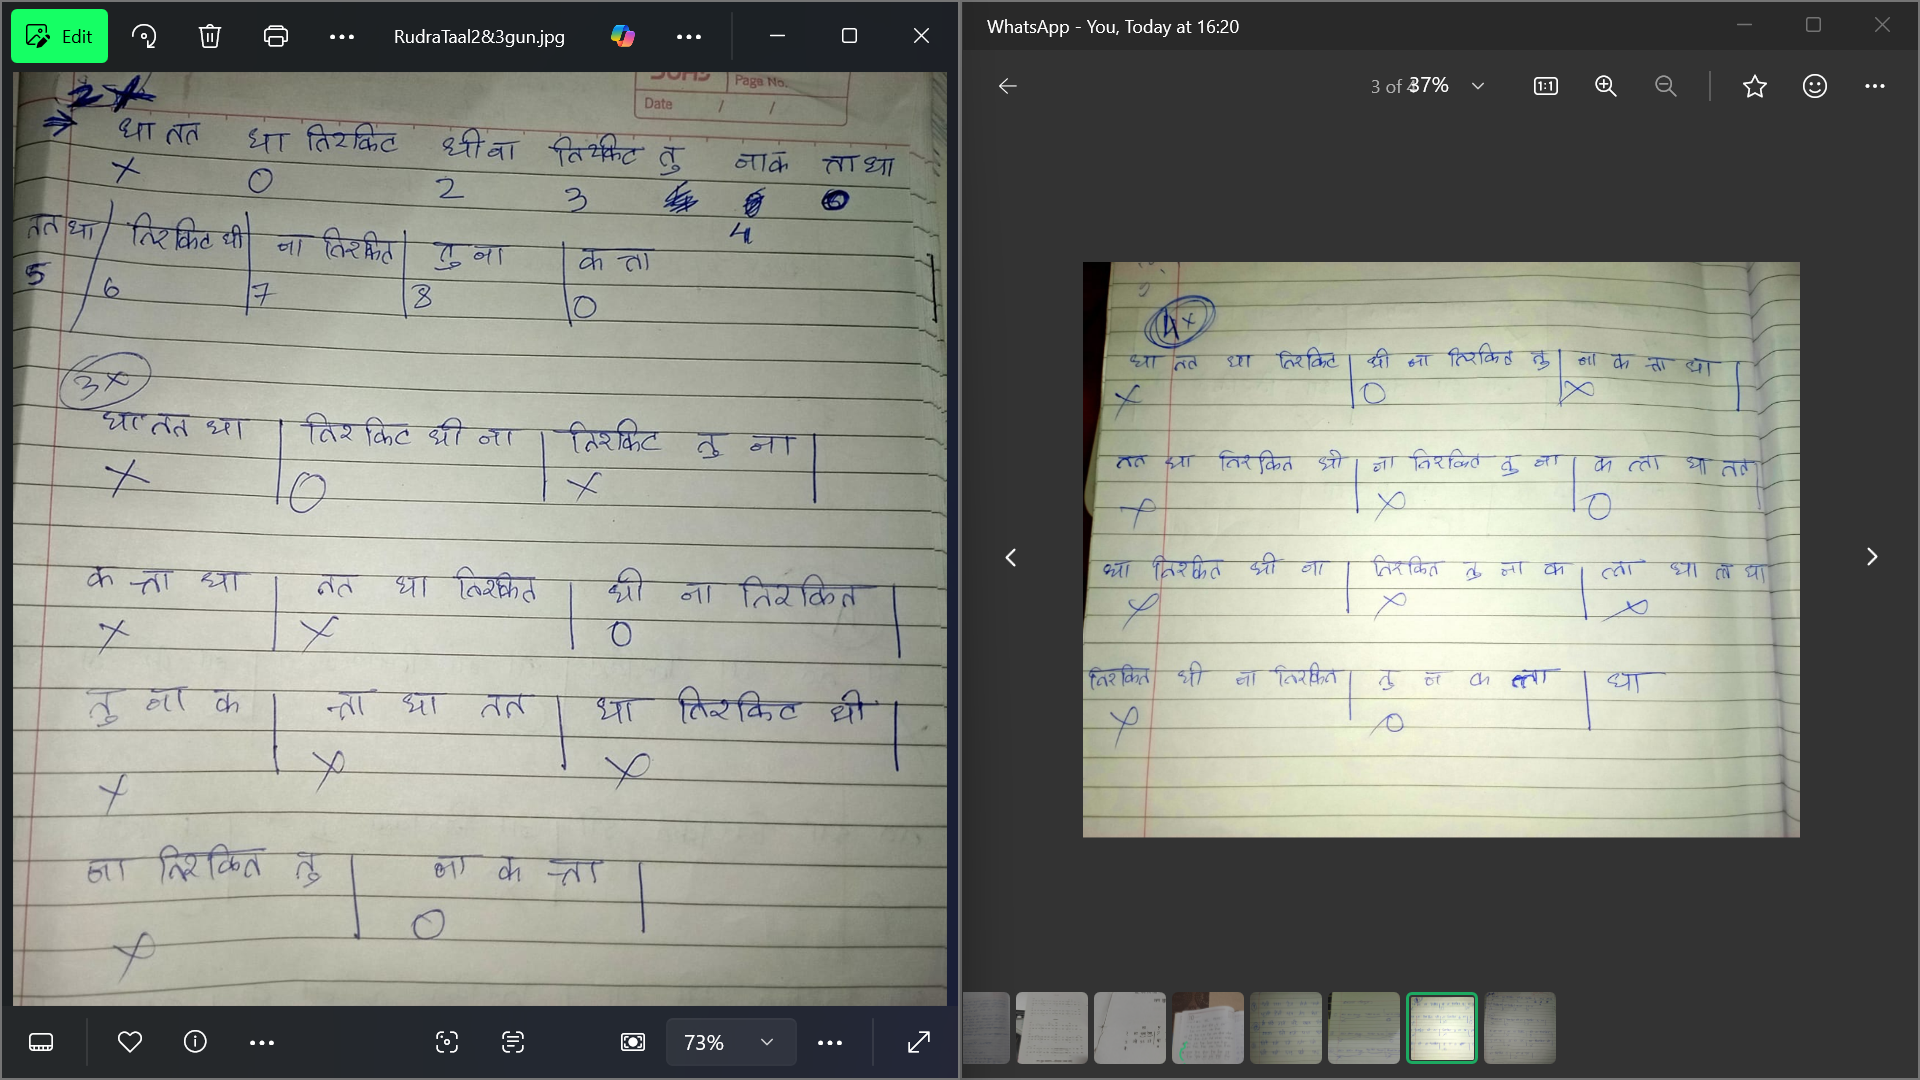 Edit
RudraTaal2&3gun.jpg
Page No.
Date / /
2x
धा तत धा तिरकिट धी ना तिरकिट तु ना क त्ता धा
x 0 2 3 4
तत धा तिरकिट धी ना तिरकित तु ना क त्ता
5 6 7 8 0
3x
धा तत धा तिरकिट धी ना तिरकिट तु ना
x 0 x
क त्ता धा तत धा तिरकित धी ना तिरकित
x x 0
तु ना क त्ता धा तत धा तिरकिट धी
x x x
ना तिरकित तु ना क त्ता
x 0
73%
WhatsApp - You, Today at 16:20
3 of 37%
1:1
4x
धा तत धा तिरकिट धी ना तिरकित तु ना क त्ता धा
x 0 x
तत धा तिरकित धी ना तिरकित तु ना क त्ता धा तत
x x 0
धा तिरकित धी ना तिरकित तु ना क त्ता धा त धा
x x x
तिरकित धी ना तिरकित तु न क त्ता धा
x 0